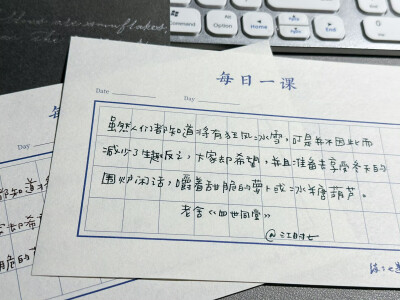 snowflakes.
Command
Option
Home
End
每日一课
Date
Day
虽然人们都知道将有狂风冰雪，可是并不因此而
减少了生趣反之，大家却希望，并且准备去享受冬天的
围炉闲话，嚼着甜脆的萝卜或冰糖葫芦。
老舍《四世同堂》
每
Day